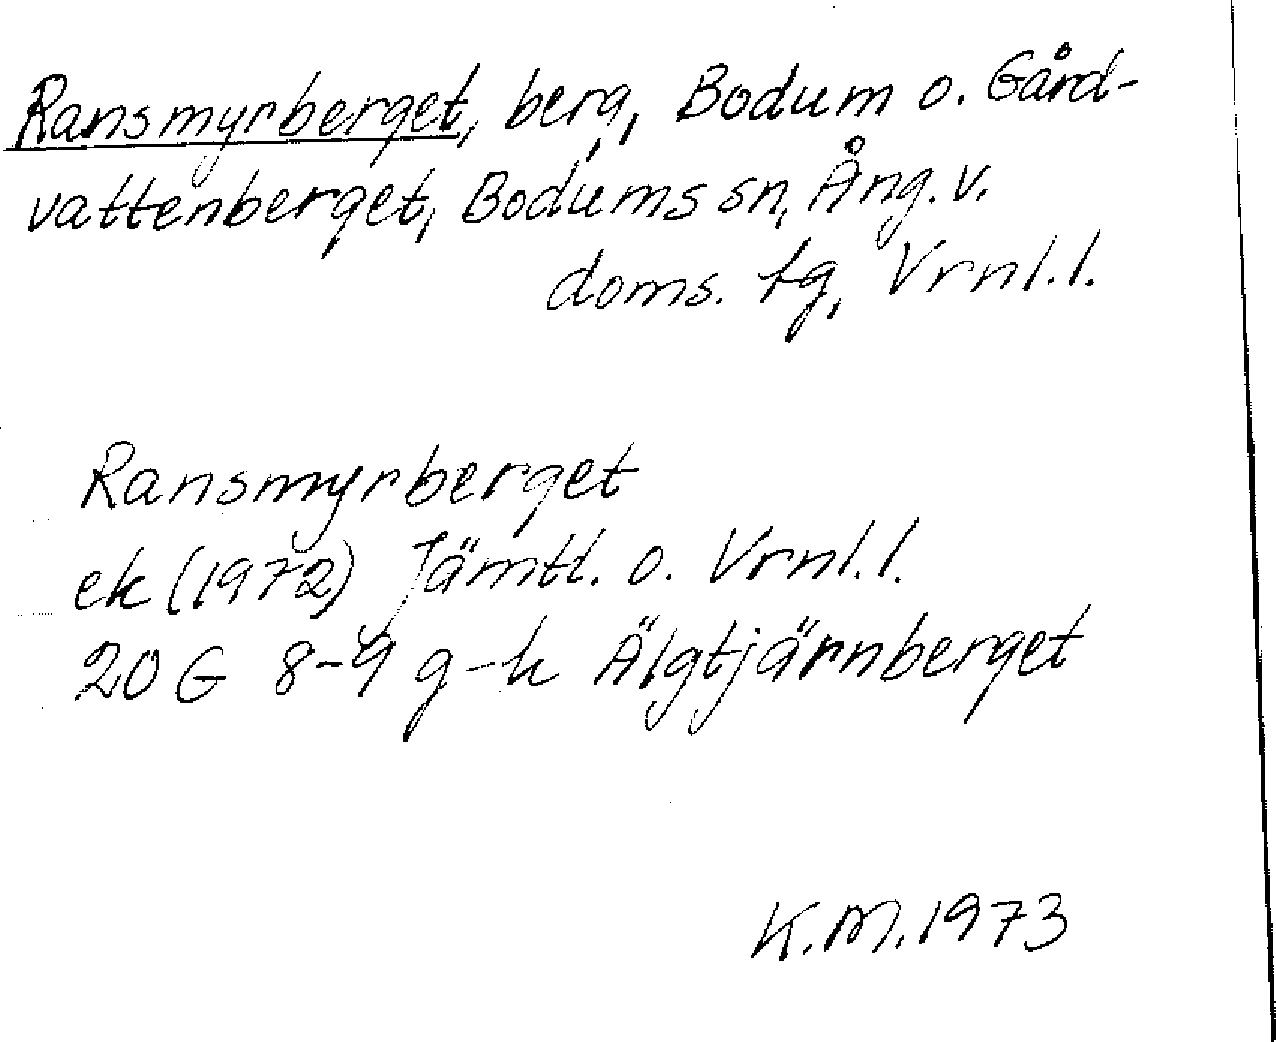 Ransmyrberget, berg, Bodum o. Gård-
vattenberget, Bodums sn, Ång. v.
doms. tg, Vrnl.l.
Ransmyrberget
ek (1972) Jämtl. o. Vrnl.l.
20 G 8-9 g-h Älgtjärnberget
K.M. 1973